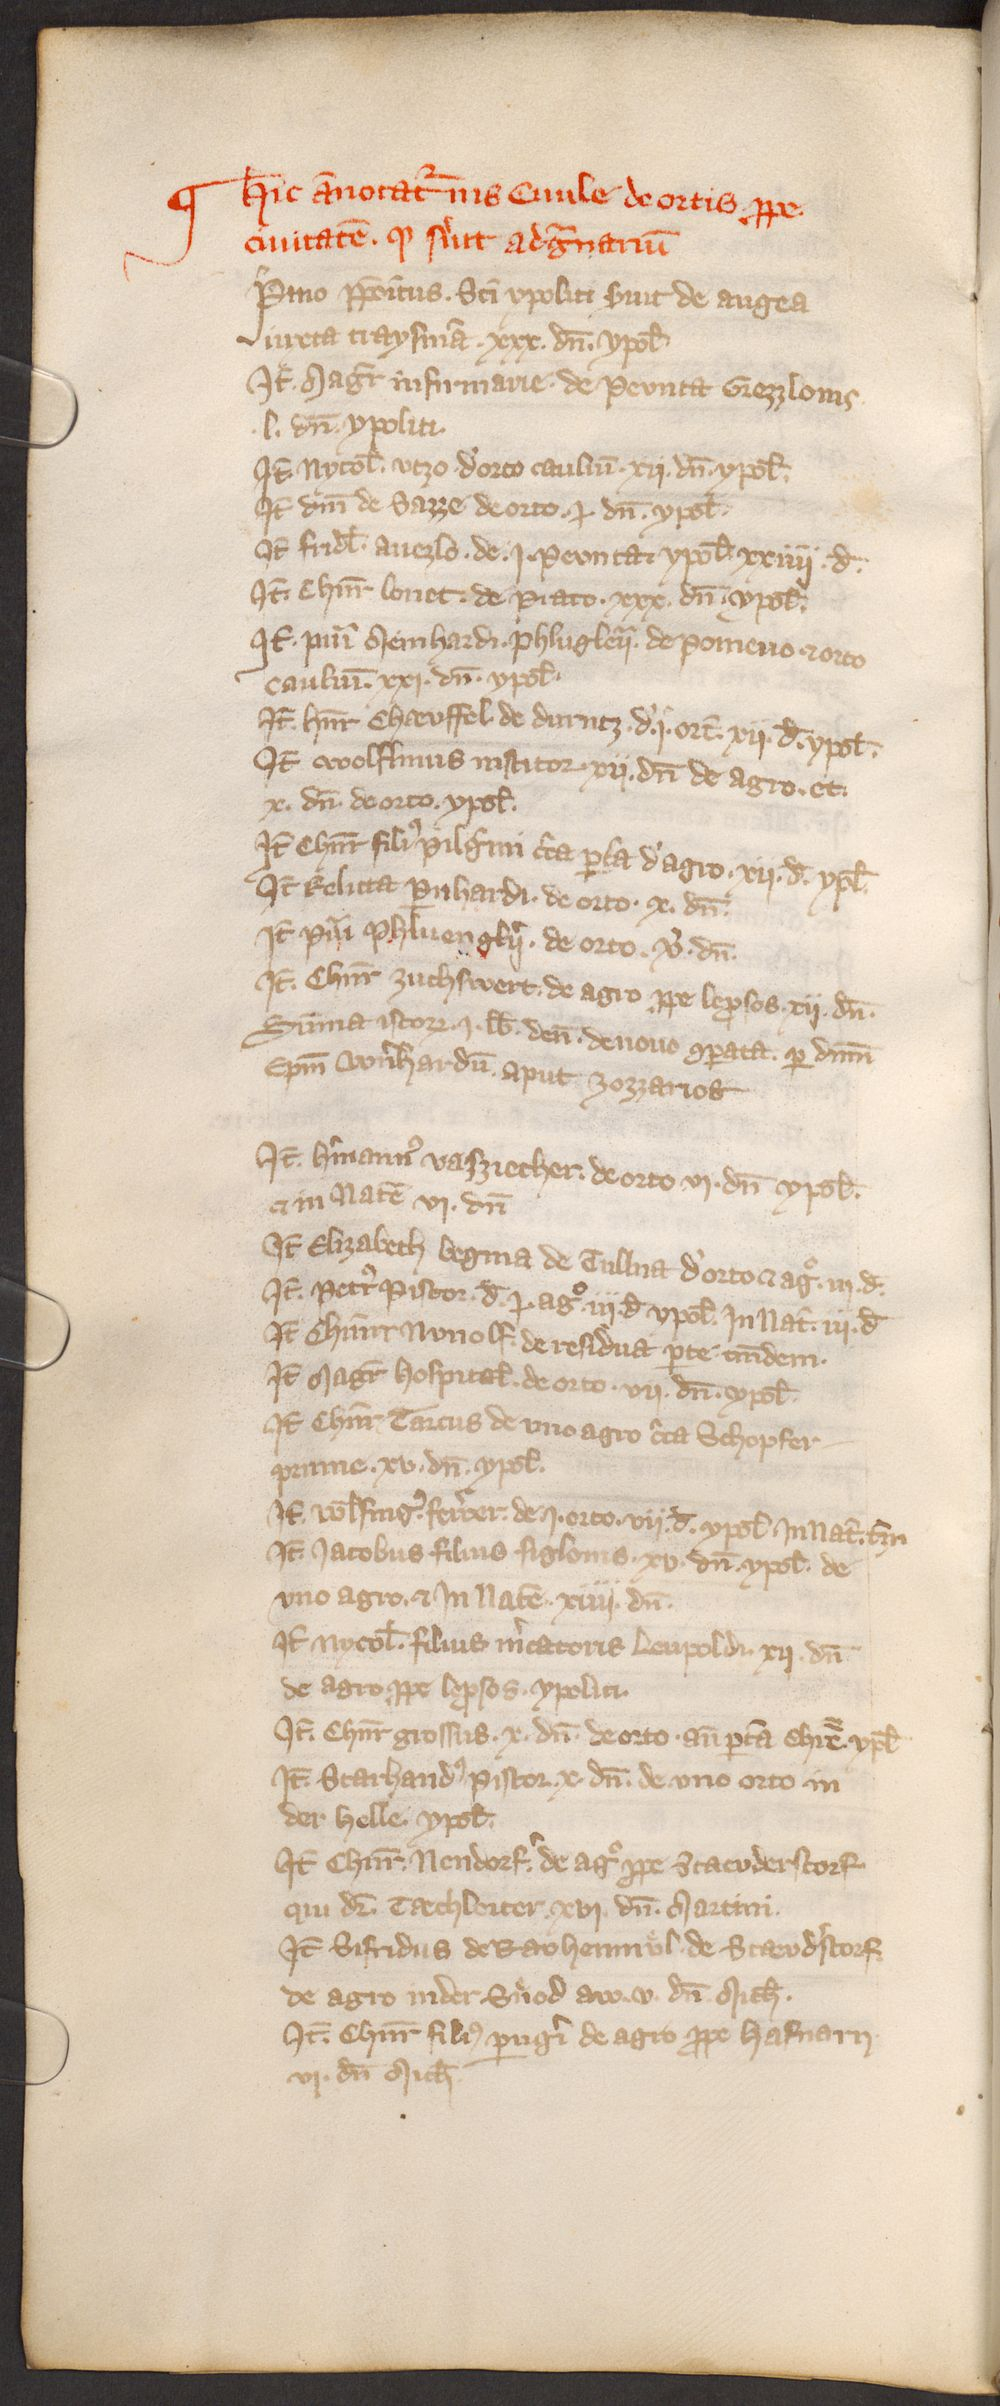 Hic ānotat᷑ ius Ciuile de ortis ꝓpe
ciuitatē. qͥ sͥuit ad gͣnariū
Pͥmo p̄positus. Sc̄i ypoliti suit de augea
iuxta traysmā. xxx. dn̄. ypol̄
It̄. Magr̄ infirmarie. de Peunta Grezzlonis
.l. dn̄. ypoliti.
It̄. Nycol̄. utzo. d' orto cauliū. xij. dn̄. ypol̄.
It̄ dn̄i de Sazze de orto. j. dn̄. ypol̄.
It̄ fridl̄. auezlo. de. j. peuntal ypol̄ xxiiij. d̄.
It̄. Chnr̄ louet. de prato. xxx. dn̄. ypol̄.
It̄. pui᷑ Meinhardi. phlugleri᷑. de pomerio. ⁊ orto
cauliū. xxi. dn̄. ypol̄.
It̄. hnr̄ Cheuffel. de durntz. d'. j. ort̄. xij. d̄. ypol̄.
It̄ wolflinus institor. xij. dn̄ de agro. et.
x. dn̄. de orto. ypol̄.
It̄ Chnr̄ filiꝰ pilgͥmi cͥca portā d' agro. xij. d̄. ypl̄.
It̄ Relicta p̱nhardi. de orto. x. dn̄.
It̄ pui᷑ Phluenglij᷑. de orto. v. dn̄.
It̄. Chnr̄ zuchswert. de agro ꝓpe leprosos. xij. dn̄.
Summa istoꝝ. j. lb̄. den̄. de nouo ꝯꝑata. ꝑ dn̄m
Ep̄m Wernhardū. aput zozzarios
It̄. Hͥmannꝰ vaszziecher. de orto vi. dn̄ ypol̄.
⁊ in Natē vi. dn̄
It̄ Elizabeth begina de Tullna d' orto ⁊ agͦ. iij. d̄.
It̄. Petrꝰ Pistor. d̄. j. agͦ. iij. d̄ ypol̄. In Nat̄. iij. d̄
It̄ Chunr̄ Nunolf. de residua ꝑte tm̄dem.
It̄ Magr̄ hospital̄. de orto. vij. dn̄. ypol̄.
It̄ Chnr̄ Tarcus de vno agro cͥca Schopfer
prunne. xv. dn̄. ypol̄.
It̄. wl̄fingꝰ. ferber. de. j. orto. vij. d̄. ypol̄ In Nat̄. tm̄
It̄. Jacobus filius figlonis. xv. dn̄. ypol̄. de
vno agro. ⁊ In Natē. xiiij. dn̄.
It̄ Nycol̄. filius mͥcatoris Leupoldi. xij. dn̄
de agro ꝓpe leprosos. ypoliti.
It̄. Chnr̄ grossus. x. dn̄. de orto. an̄ portā Chrē. ypl̄
It̄. Starhandꝰ pistor. x. dn̄. de vno orto in
der helle. ypol̄.
It̄ Chnr̄. Nendorf.ͥ de agͦ ꝓpe Staeuderstorf
qui dr̄. Taechleiter. xvi. dn̄. Martini.
It̄ Sifridus de Rachenmul. de Staeudͥstorf.
de agro in der Snod aw. v. dn̄. Mich̄.
It̄. Chnr̄ filiꝰ prugͥi de agro ꝓpe Hafnarn
vi. dn̄ Mich̄.